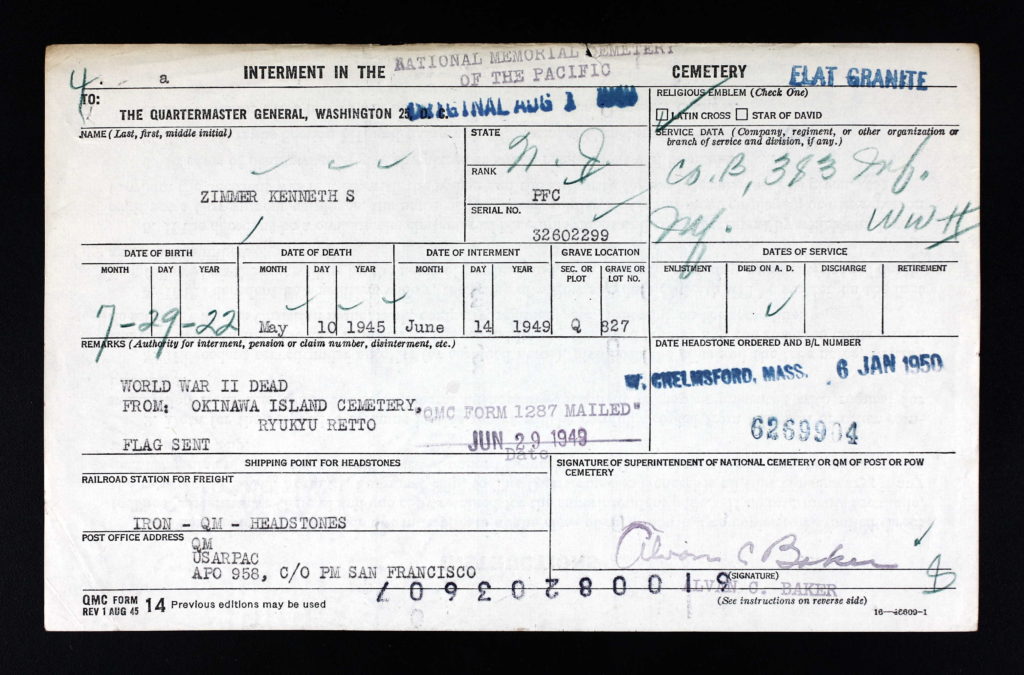 4. a INTERMENT IN THE NATIONAL MEMORIAL CEMETERY OF THE PACIFIC CEMETERY FLAT GRANITE
TO:
THE QUARTERMASTER GENERAL, WASHINGTON 25, D. C.
ORIGINAL AUG 1
RELIGIOUS EMBLEM (Check One)
LATIN CROSS STAR OF DAVID
NAME (Last, first, middle initial)
ZIMMER KENNETH S
STATE
N. J.
RANK
PFC
SERIAL NO.
32602299
SERVICE DATA (Company, regiment, or other organization or branch of service and division, if any.)
Co. B, 383 Inf.
Inf. WW II
DATE OF BIRTH DATE OF DEATH DATE OF INTERMENT GRAVE LOCATION DATES OF SERVICE
MONTH DAY YEAR MONTH DAY YEAR MONTH DAY YEAR SEC. OR PLOT GRAVE OR LOT NO. ENLISTMENT DIED ON A. D. DISCHARGE RETIREMENT
7-29-22 May 10 1945 June 14 1949 Q 827
REMARKS (Authority for interment, pension or claim number, disinterment, etc.)
WORLD WAR II DEAD
FROM: OKINAWA ISLAND CEMETERY,
RYUKYU RETTO
FLAG SENT
"QMC FORM 1287 MAILED"
JUN 29 1949
Date
DATE HEADSTONE ORDERED AND B/L NUMBER
W. CHELMSFORD, MASS. 6 JAN 1950
6269904
SHIPPING POINT FOR HEADSTONES
RAILROAD STATION FOR FREIGHT
IRON - QM - HEADSTONES
POST OFFICE ADDRESS
QM
USARPAC
APO 958, C/O PM SAN FRANCISCO
SIGNATURE OF SUPERINTENDENT OF NATIONAL CEMETERY OR QM OF POST OR POW CEMETERY
Alvan C Baker
(SIGNATURE)
ALVAN C. BAKER
(See instructions on reverse side)
QMC FORM REV 1 AUG 45 14 Previous editions may be used
16—45609-1